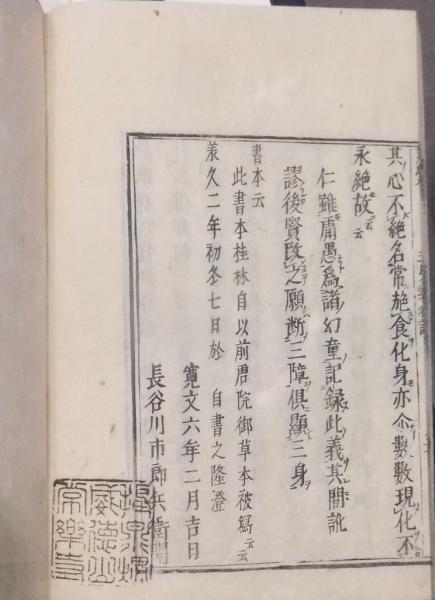 其心不絶名常施食化身亦尒數數現化不
永絶故云云
仁雖庸愚為諸幻童記録此義其間訛
謬後賢改之願断三障倶顯三身
書本云
此書本桂林自以前君院御草本被寫云云
承久二年初冬七日於 自書之隆澄
寛文六年二月吉日
長谷川市郎兵衛
威德山
常樂寺